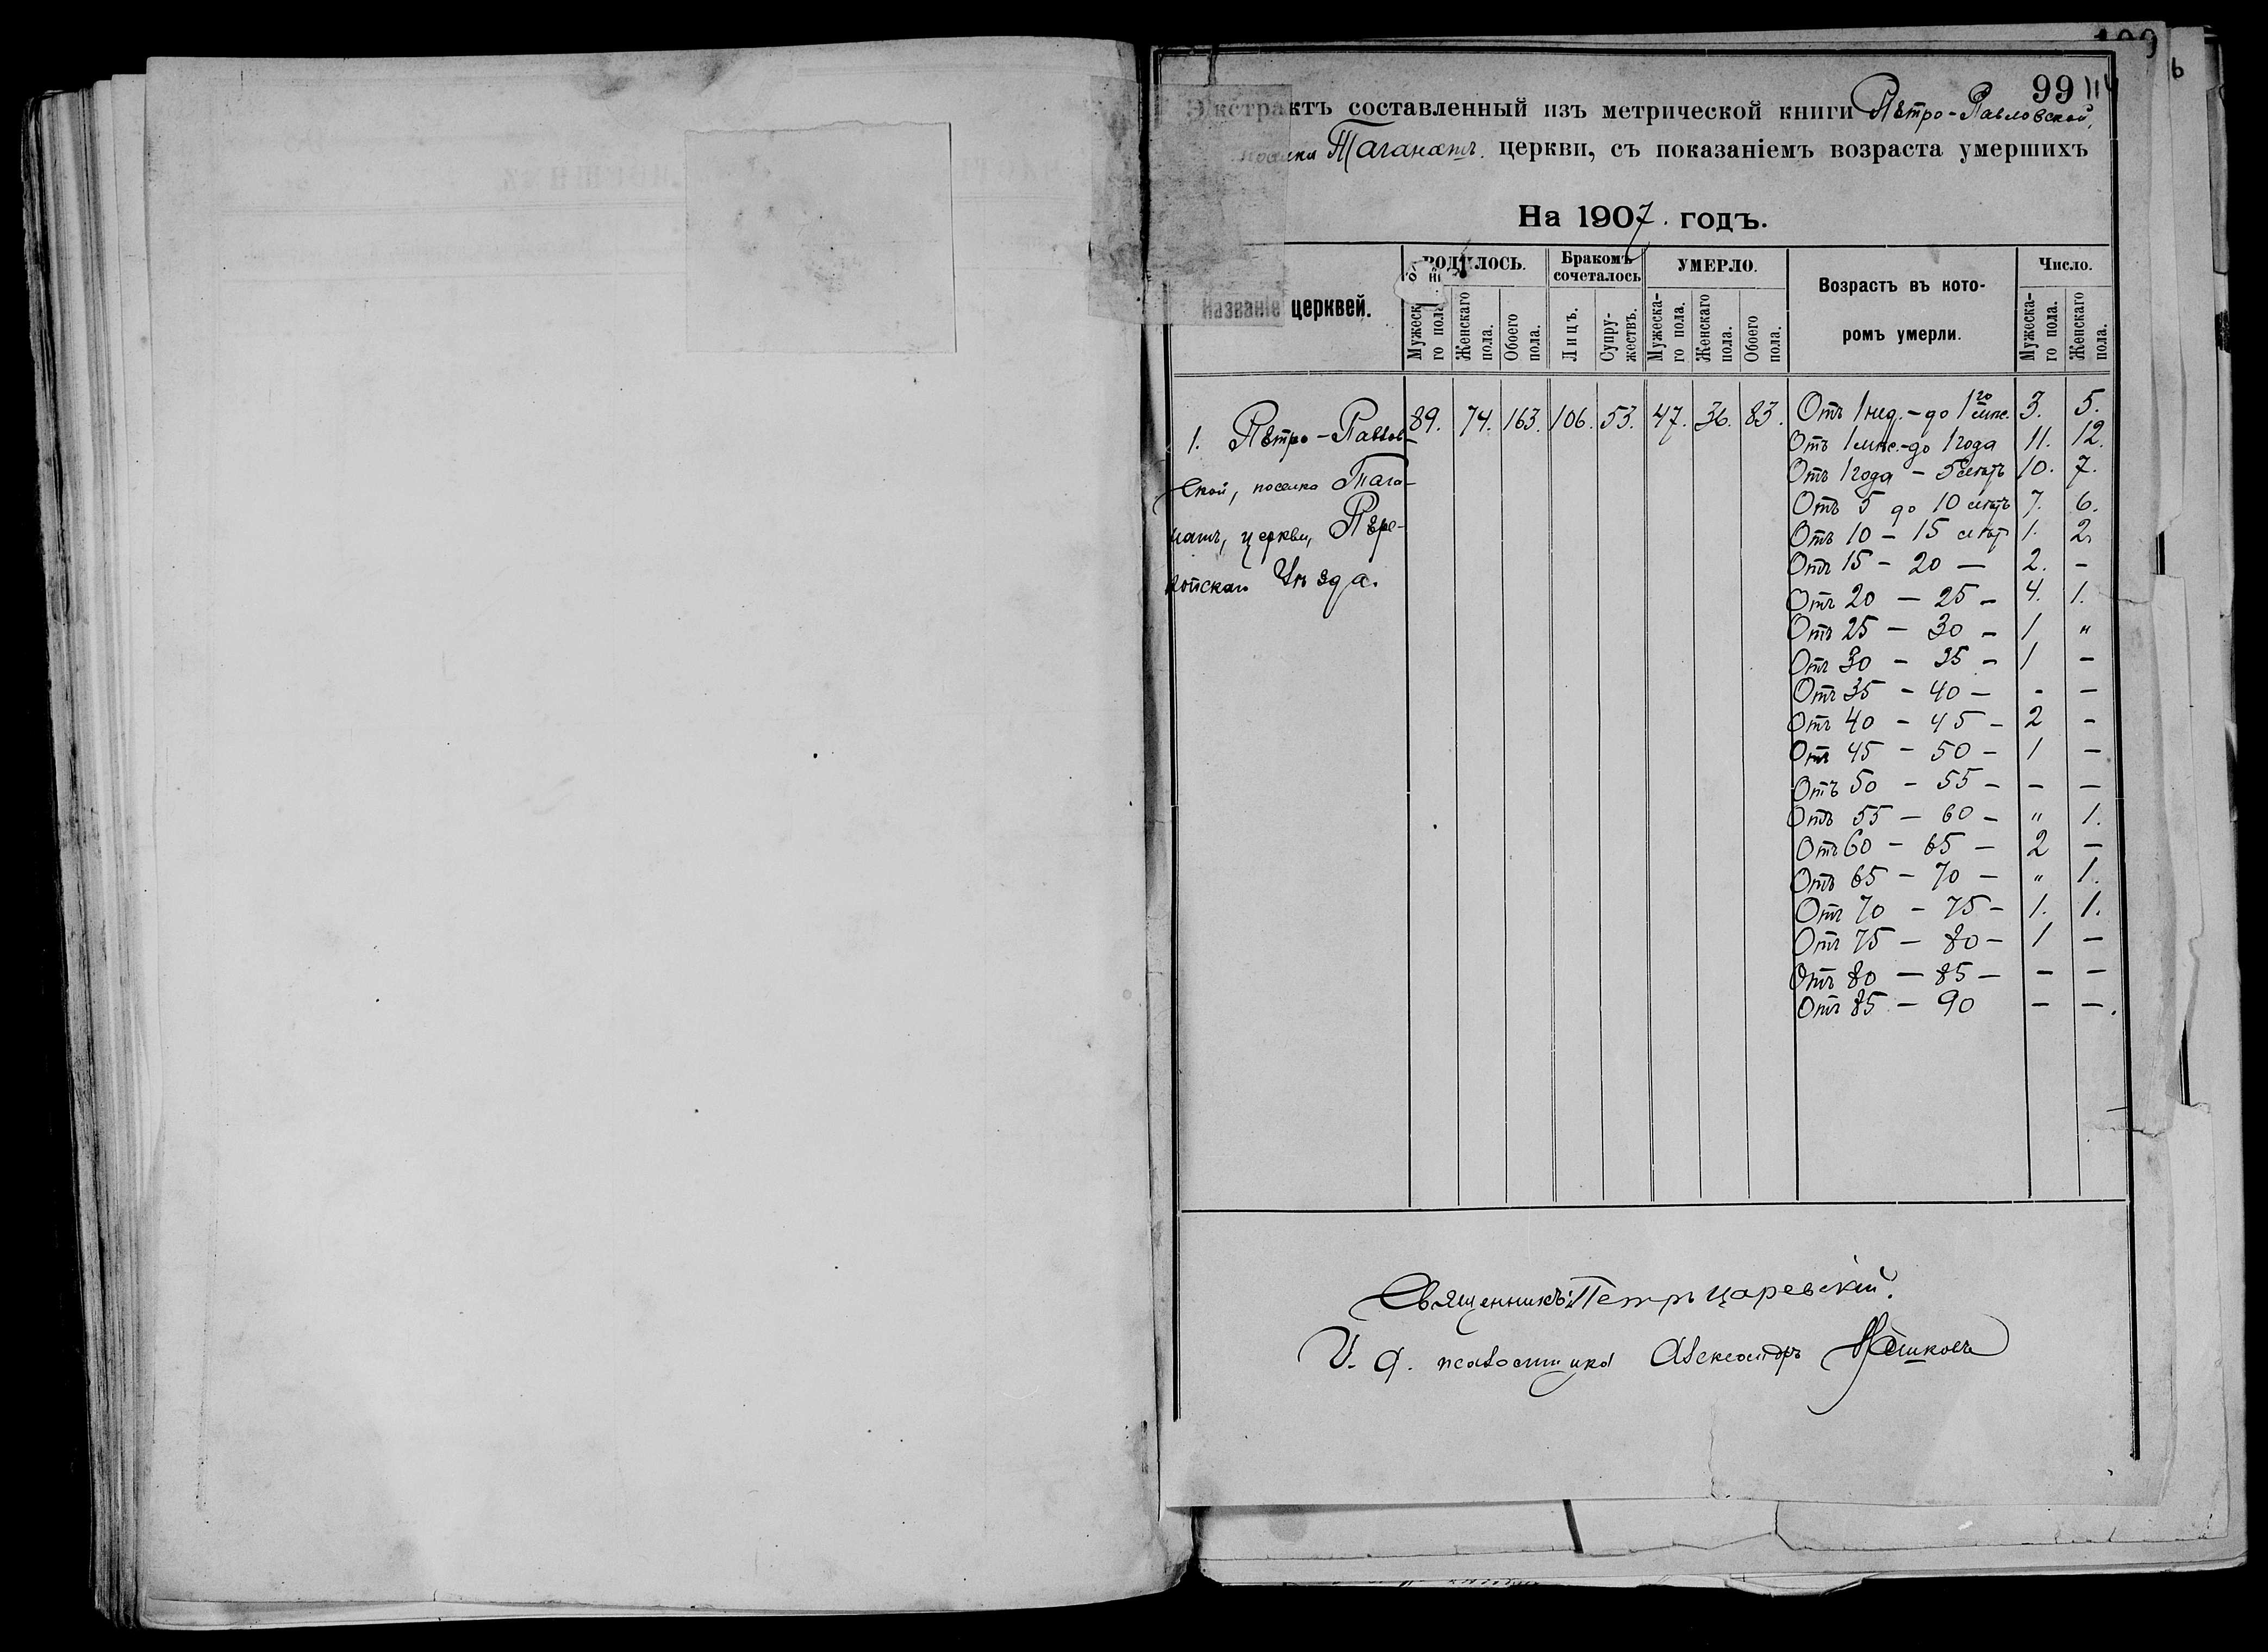 99 114
Экстрактъ составленный изъ метрической книги Петро-Павловской,
поселка Таганашъ церкви, съ показаніемъ возраста умершихъ
На 1907. годъ.
Названіе церквей.
РОДИЛОСЬ.
Мужеска-
го пола
Женскаго
пола.
Обоего
пола.
Бракомъ
сочеталось
Лицъ.
Супру-
жествъ.
УМЕРЛО.
Мужеска-
го пола.
Женскаго
пола.
Обоего
пола.
Возрастъ въ кото-
ромъ умерли.
Число.
Мужеска-
го пола.
Женскаго
пола.
1. Петро-Павлов-
ской, поселка Тага-
нашъ, церкви, Пере-
копскаго Уѣзда.
89. 74. 163. 106. 53. 47. 36. 83.
Отъ 1 нед. - до 1го мѣс. 3. 5.
Отъ 1 мѣс. - до 1 года 11. 12.
Отъ 1 года - 5 лѣтъ 10. 7.
Отъ 5 до 10 лѣтъ 7. 6.
Отъ 10 - 15 лѣтъ 1. 2.
Отъ 15 - 20 - 2. -
Отъ 20 - 25 - 4. 1.
Отъ 25 - 30 - 1 "
Отъ 30 - 35 - 1 -
Отъ 35 - 40 - - -
Отъ 40 - 45 - 2 -
Отъ 45 - 50 - 1 -
Отъ 50 - 55 - - -
Отъ 55 - 60 - " 1.
Отъ 60 - 65 - 2 -
Отъ 65 - 70 - " 1.
Отъ 70 - 75 - 1. 1.
Отъ 75 - 80 - 1 -
Отъ 80 - 85 - - -
Отъ 85 - 90 - -.
Священникъ: Петръ Царевскій.
И. д. псаломщика Александръ